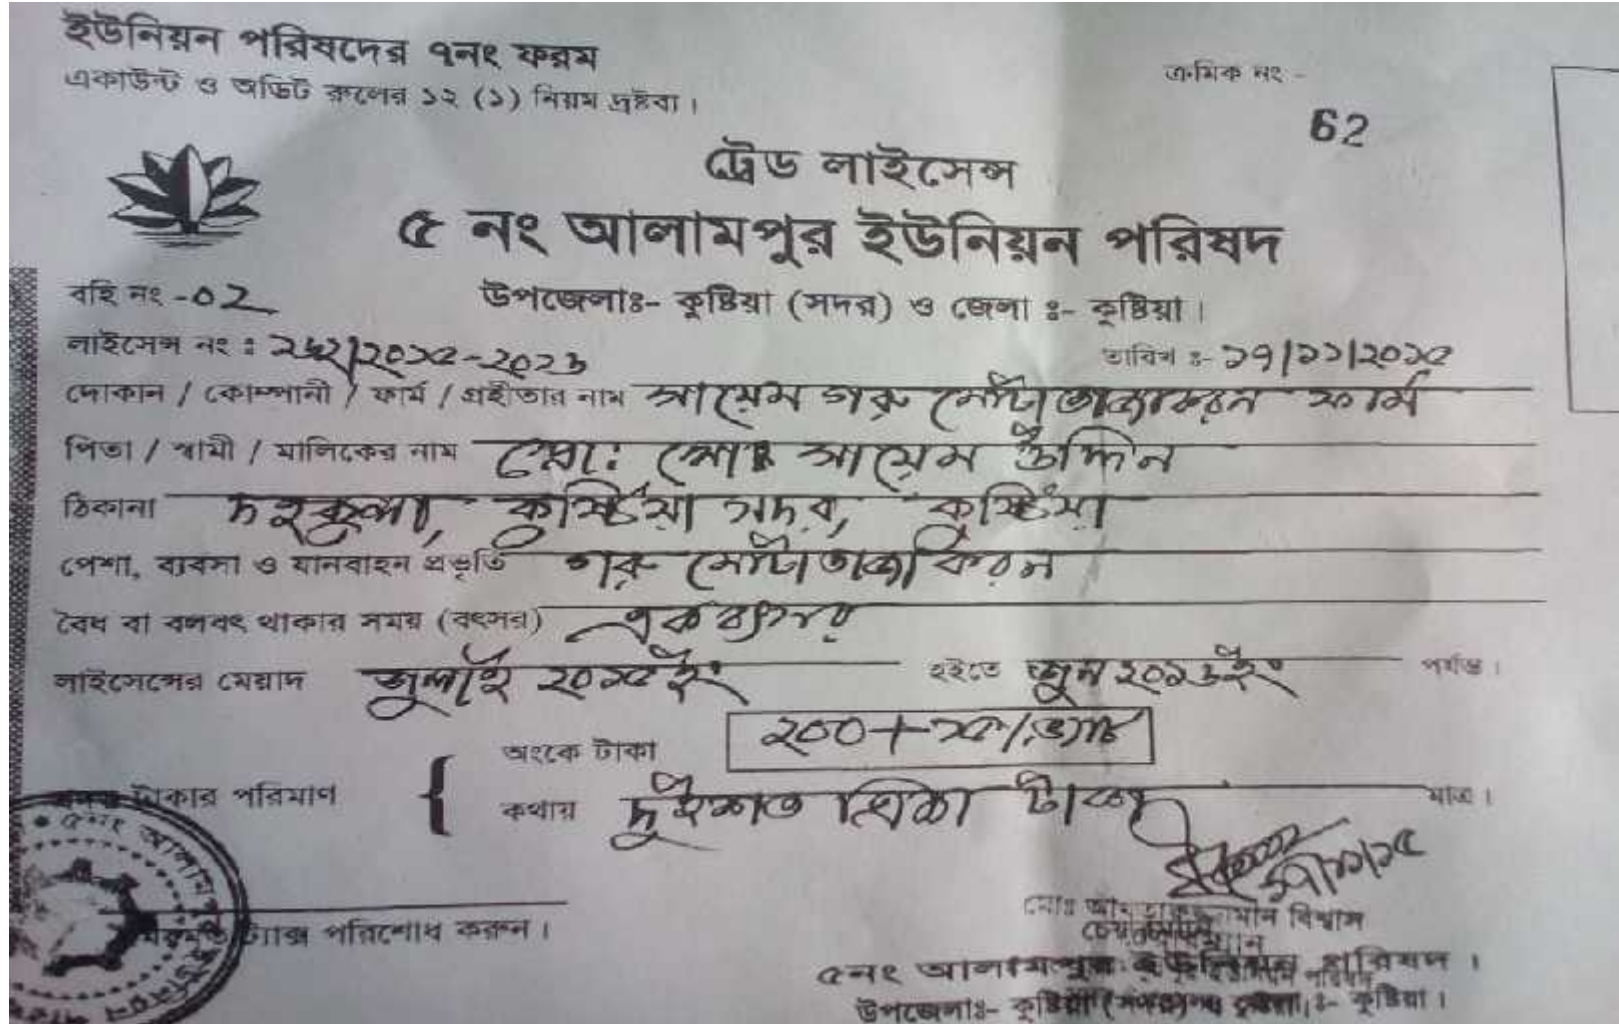 ইউনিয়ন পরিষদের ৭নং ফরম
একাউন্ট ও অডিট রুলের ১২ (১) নিয়ম দ্রষ্টব্য।
ক্রমিক নং -
62
ট্রেড লাইসেন্স
৫ নং আলামপুর ইউনিয়ন পরিষদ
বহি নং -০2
উপজেলাঃ- কুষ্টিয়া (সদর) ও জেলা ঃ- কুষ্টিয়া।
লাইসেন্স নং ঃ
তারিখ ঃ- ১৭/১১/২০১৫
দোকান / কোম্পানী / ফার্ম / গ্রহীতার নাম সায়েম গরু মোটাতাজাকরন ফার্ম
পিতা / স্বামী / মালিকের নাম প্রো: মোঃ সায়েম উদ্দিন
ঠিকানা দহকুলা, কুষ্টিয়া সদর, কুষ্টিয়া
পেশা, ব্যবসা ও যানবাহন প্রভৃতি গরু মোটাতাজাকরন
বৈধ বা বলবৎ থাকার সময় (বৎসর) এক বৎসর
লাইসেন্সের মেয়াদ জুলাই ২০১৫ইং হইতে জুন ২০১৬ইং পর্যন্ত।
অংকে টাকা ২০০+
টাকার পরিমাণ
কথায় দুইশত ত্রিশ টাকা মাত্র।
ট্যাক্স পরিশোধ করুন।
১৭/১১/১৫
মোঃ বিশ্বাস
চেয়ারম্যান
৫নং আলামপুর ইউনিয়ন পরিষদ।
উপজেলাঃ- কুষ্টিয়া (সদর) ঃ- কুষ্টিয়া।
৫নং আলামপুর ইউনিয়ন